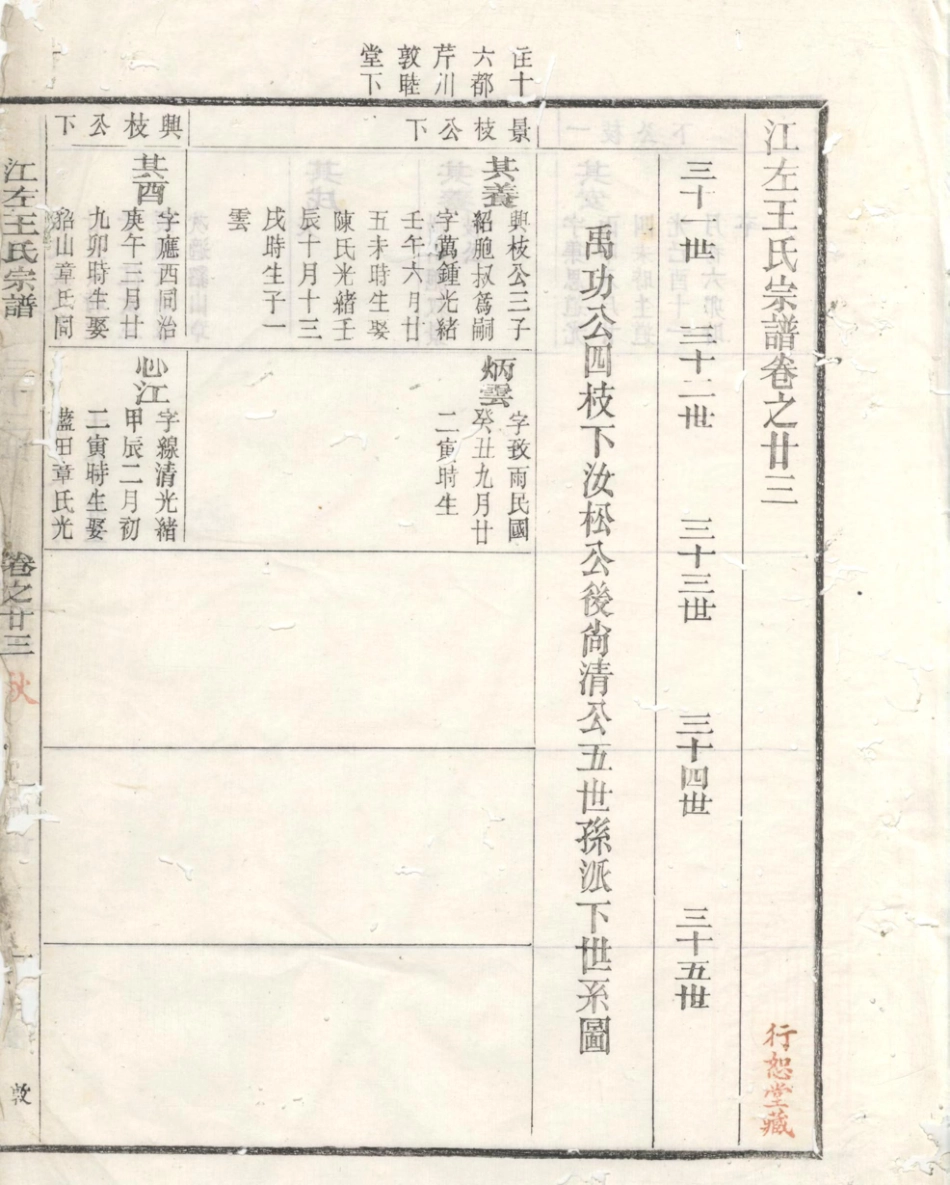 江左王氏宗譜卷之廿三
行恕堂藏
三十世
三十二世
三十三世
三十四世
三十五世
禹功公四枝下汝松公後尚清公五世孫派下世系圖
十
六都
芹川
敦睦
堂下
景枝公下
其養
興枝公三子
紹胞叔爲嗣
字萬鍾光緒
壬午六月廿
五未時生娶
陳氏光緒壬
辰十月十三
戌時生子一
雲
炳雲
字致雨民國
癸丑九月廿
二寅時生
興枝公下
其酉
字應西同治
庚午三月廿
九卯時生娶
山章氏同
心江
字線清光緒
甲辰二月初
二寅時生娶
藍田章氏光
江左王氏宗譜
卷之廿三
秋
敦